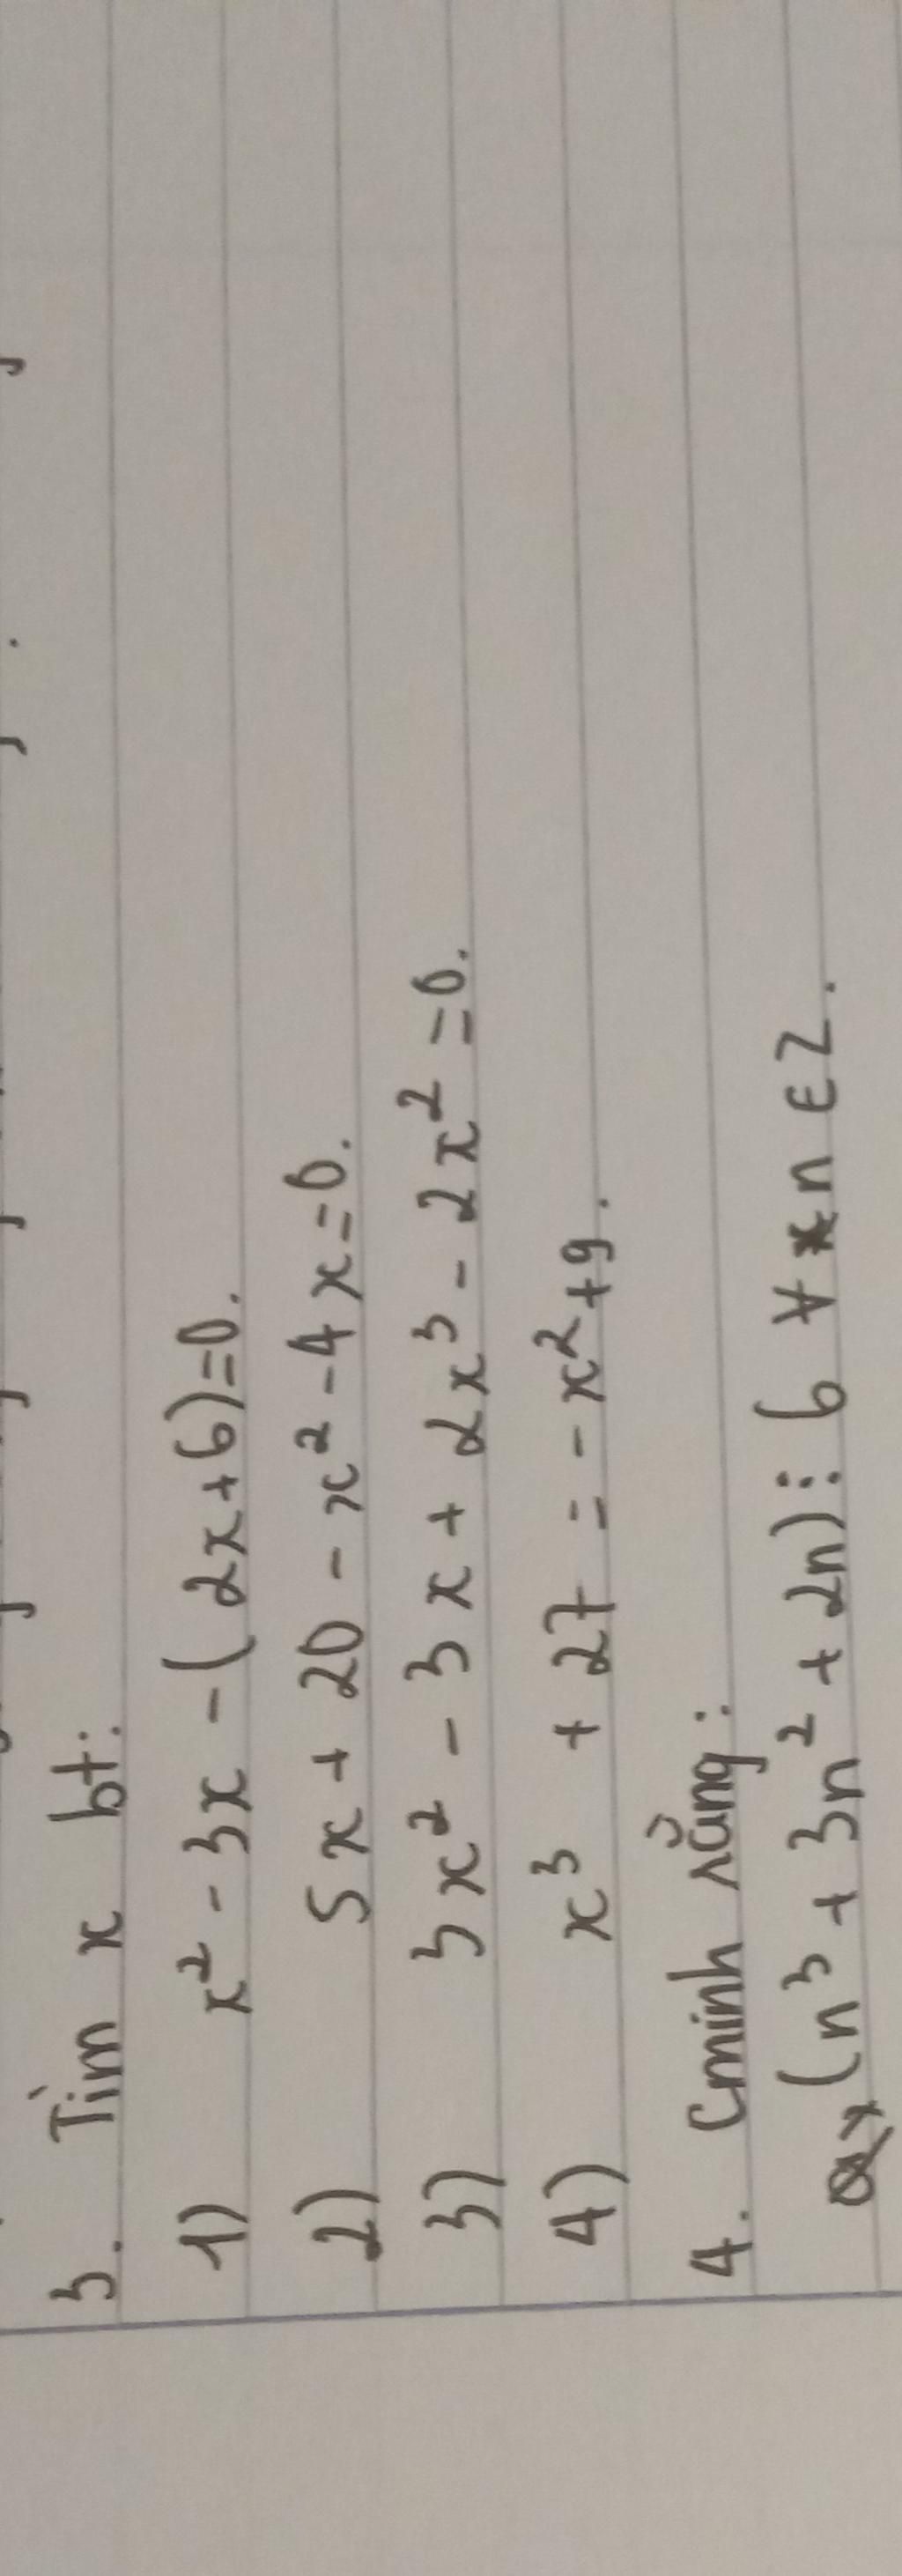 3. Tìm x bt:
1) x² - 3x - (2x+6)=0.
2) 5x + 20 - x² - 4x=0.
3) 3x² - 3x + 2x³ - 2x² = 0.
4) x³ + 27 = -x²+9.
4. Cminh rằng:
(n³ + 3n² + 2n) ⋮ 6 ∀ n ∈ Z.